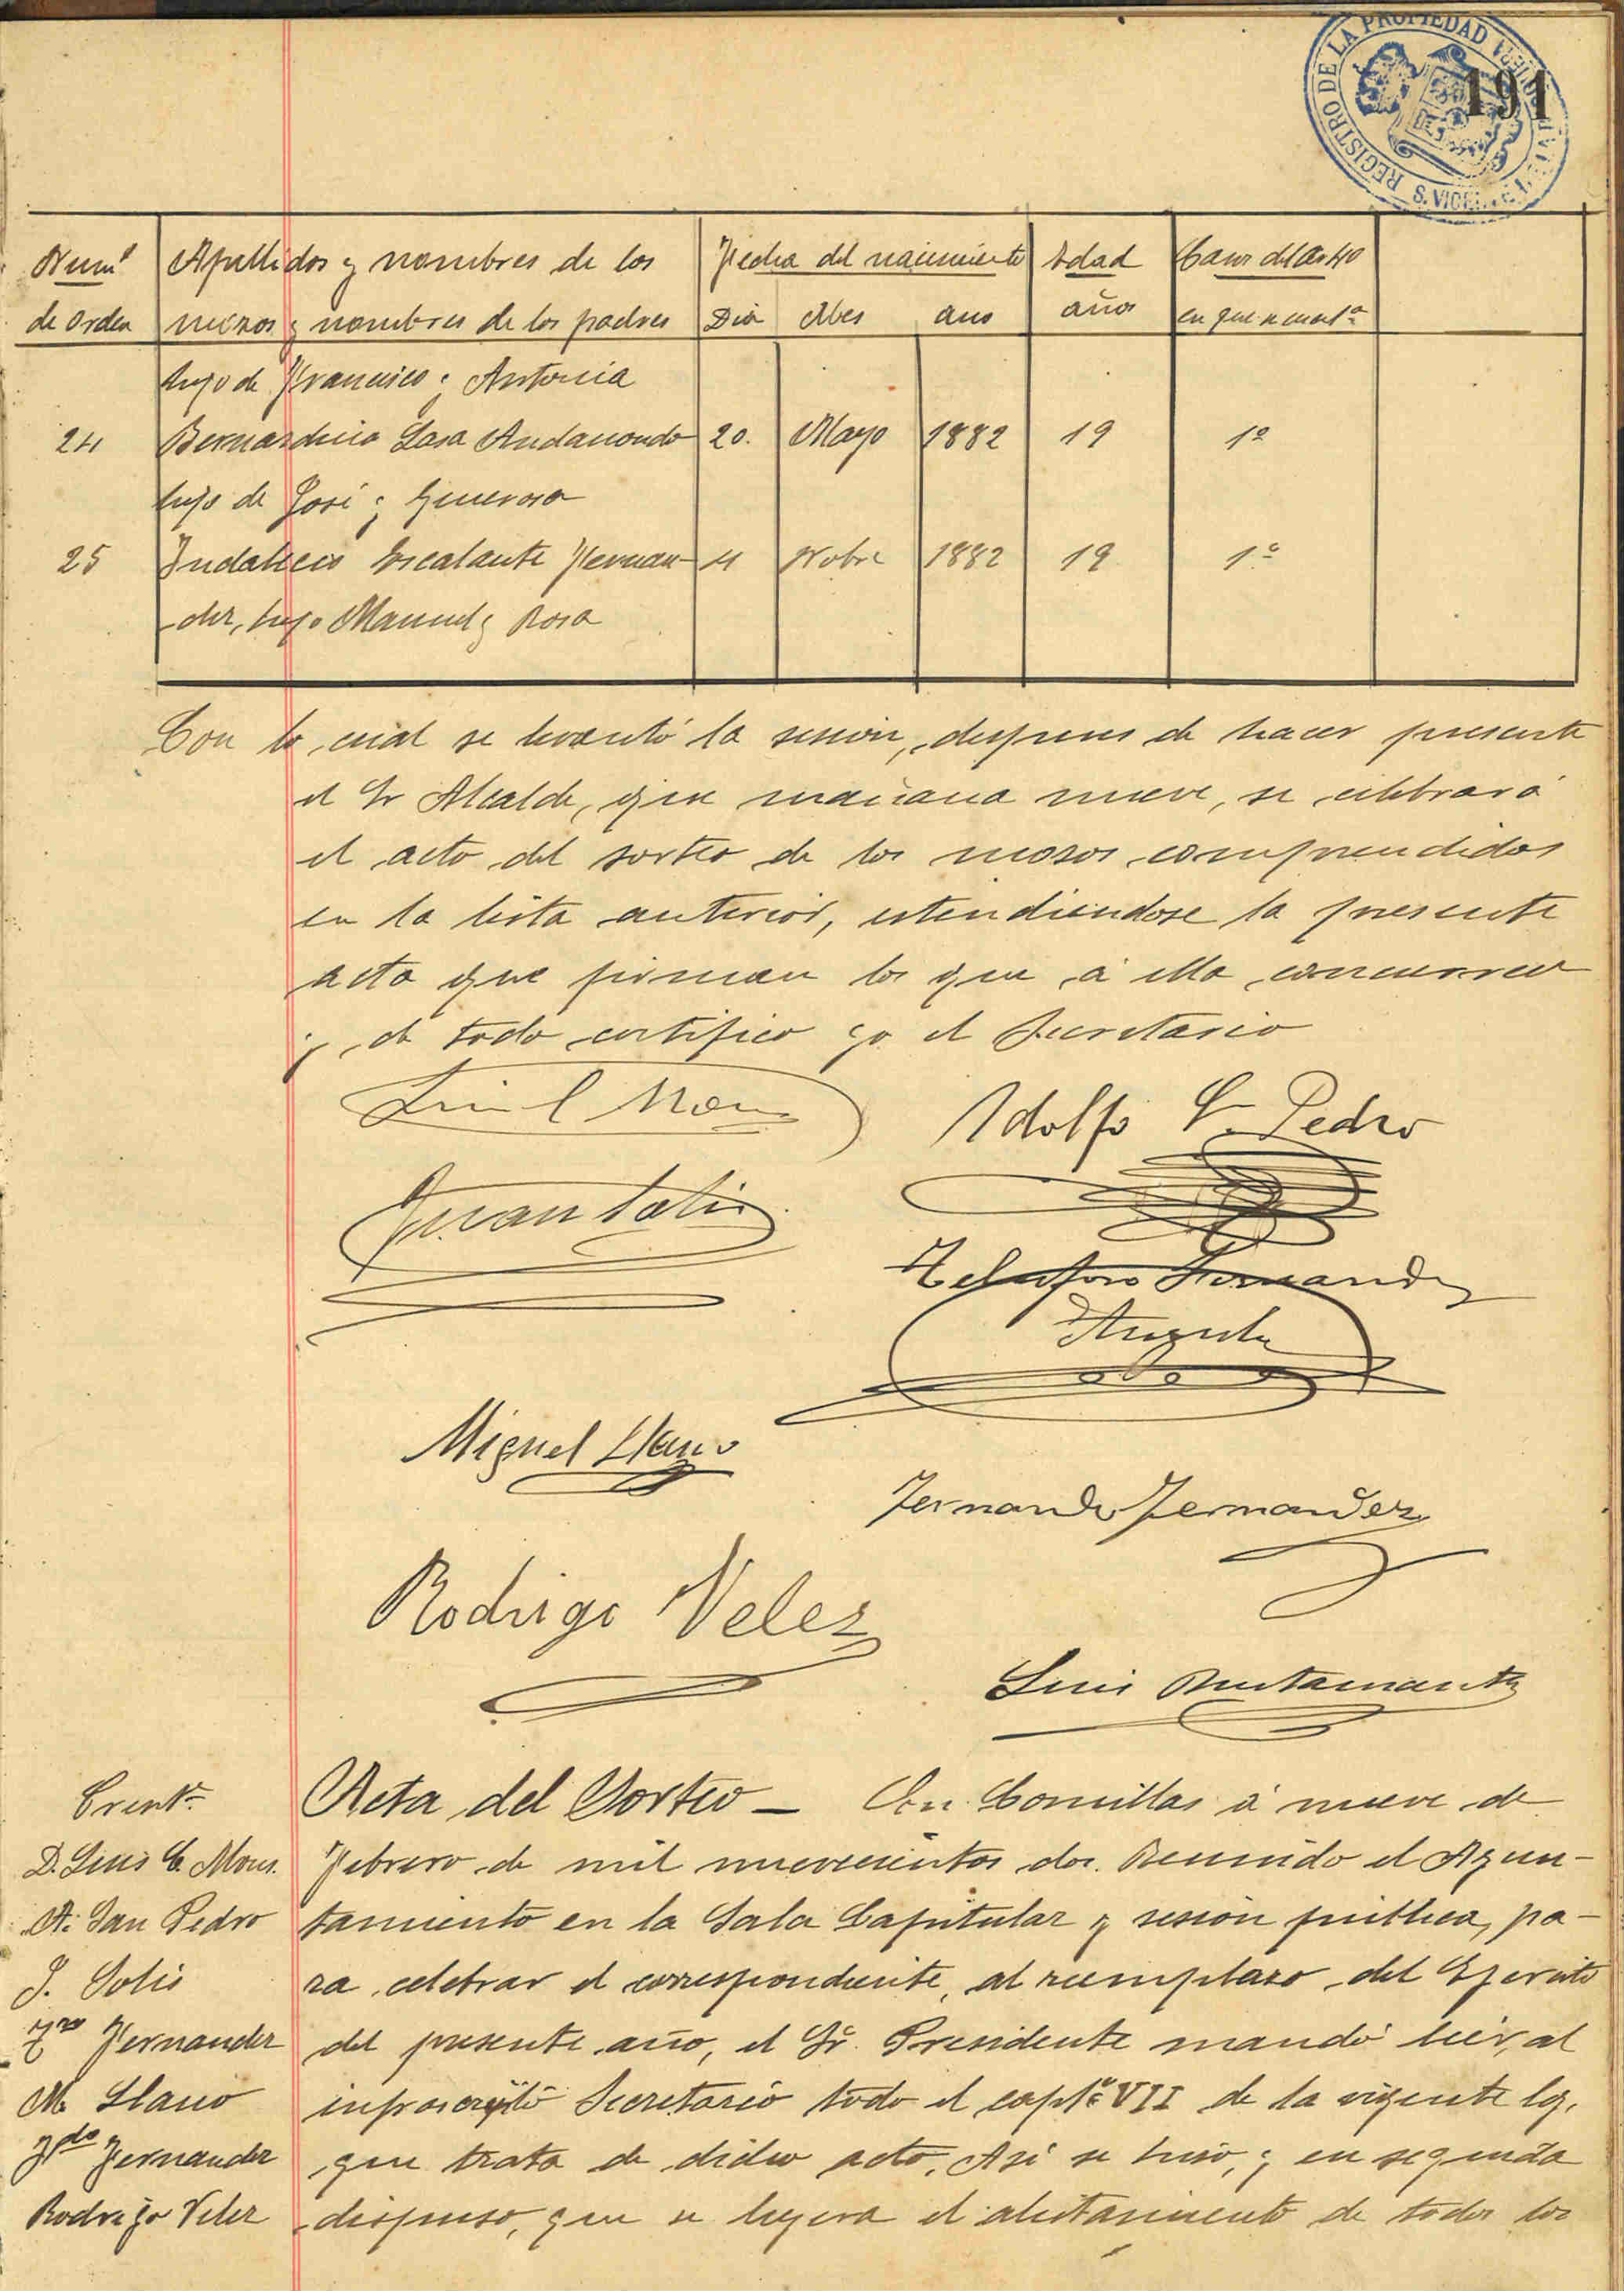 REGISTRO DE LA PROPIEDAD
S. VICENTE
191
Numº Apellidos y nombres de los Fecha del nacimiento Edad Caso del art 40
de orden mozos y nombres de los padres Dia Mes año años en que
hijo de Francisco y Antonia
24 Bernardino Lasa 20. Mayo 1882 19 1º
hijo de José y Generosa
25 Indalecio Escalante Fernan- 4 Nobre 1882 19 1º
-dez, hijo Manuel y Rosa
Con lo cual se levantó la sesion, despues de hacer presente
el Sr Alcalde, que mañana nueve, se celebrará
el acto del sorteo de los mozos comprendidos
en la lista anterior, estendiendose la presente
acta que firman los que á ella concurren
y de todo certifico yo el Secretario
Luis C Mons
Adolfo S. Pedro
Juan Solis
Telesforo Fernandez
Miguel Llano
Fernando Fernandez
Rodrigo Velez
Luis Bustamante
Acta del Sorteo — En Comillas á nueve de
D. Luis C. Mons. Febrero de mil novecientos dos. Reunido el Ayun-
A. San Pedro tamiento en la Sala Capitular y sesión pública, pa-
J. Solis ra celebrar el correspondiente, al reemplazo del Ejercito
Fernandez del presente año, el Sr. Presidente mandó leer, al
M. Llano infrascrito Secretario todo el captº VII de la vigente ley,
Fdo Fernandez que trata de dicho acto. Asi se hizo, y en seguida
Rodrigo Velez dispuso, que se leyera el alistamiento de todos los